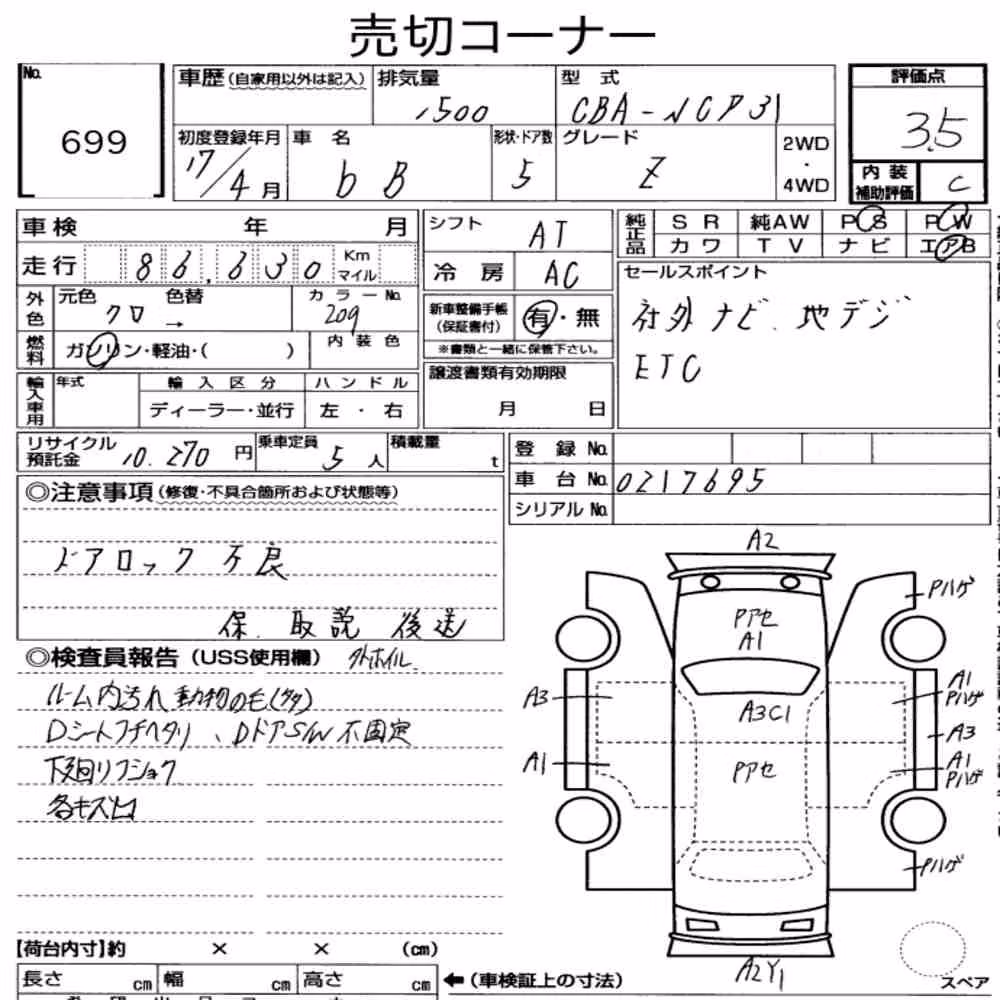 売切コーナー
No.
699
車歴(自家用以外は記入)
排気量
1500
型 式
CBA-NCP31
評価点
3.5
初度登録年月
17/4月
車 名
bB
形状・ドア数
5
グレード
Z
2WD
・
4WD
内装
補助評価
C
車検 年 月
シフト
AT
純正品
SR 純AW PS PW
カワ TV ナビ エアB
走行 86,630 Km マイル
冷房
AC
セールスポイント
社外ナビ、地デジ
ETC
外色
元色 色替
クロ →
カラーNo.
209
新車整備手帳
(保証書付)
有・無
※書類と一緒に保管下さい。
燃料
ガソリン・軽油・( )
内装色
輸入車用
年式
輸入区分
ハンドル
ディーラー・並行
左・右
譲渡書類有効期限
月 日
リサイクル
預託金
10.270円
乗車定員
5人
積載量
t
登録No.
車台No. 0217695
シリアルNo.
◎注意事項(修復・不具合箇所および状態等)
ドアロック不良
保.取説 後送
◎検査員報告(USS使用欄) 外ホイル
ルーム内汚れ 動物の毛(多)
Dシートフチヘタリ、DドアS/W不固定
下廻リフショク
各キズ凹
A2
Pハゲ
Pアセ
A1
A3
A3C1
A1
Pハゲ
A3
A1
Pアセ
A1
Pハゲ
Pハゲ
A2Y1
スペア
【荷台内寸】約 × × (cm)
長さ cm 幅 cm 高さ cm
←(車検証上の寸法)